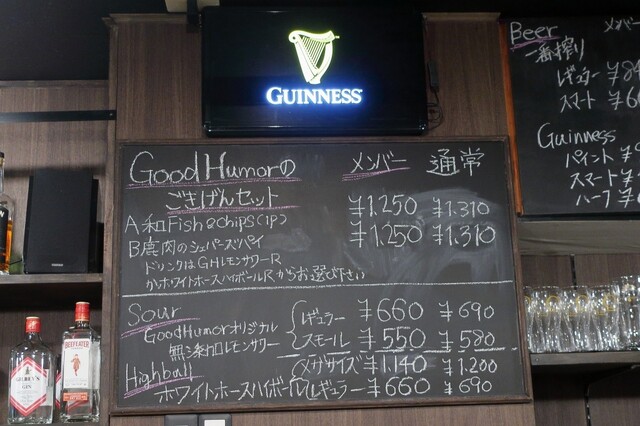 GUINNESS
GoodHumorの メンバー 通常
ごきげんセット
A和Fish&Chips(1P) ¥1.250 ¥1.310
B鹿肉のシェパーズパイ ¥1.250 ¥1.310
ドリンクはGHレモンサワーR
かホワイトホースハイボールRからお選び下さい
Sour レギュラー ¥660 ¥690
GoodHumorオリジナル
無添加レモンサワー スモール ¥550 ¥580
Highball メガサイズ ¥1.140 ¥1.200
ホワイトホースハイボール レギュラー ¥660 ¥690
Beer
一番搾り
レギュラー
スマート
Guinness
パイント
スマート
ハーフ
GILBEY'S
GIN
BEEFEATER